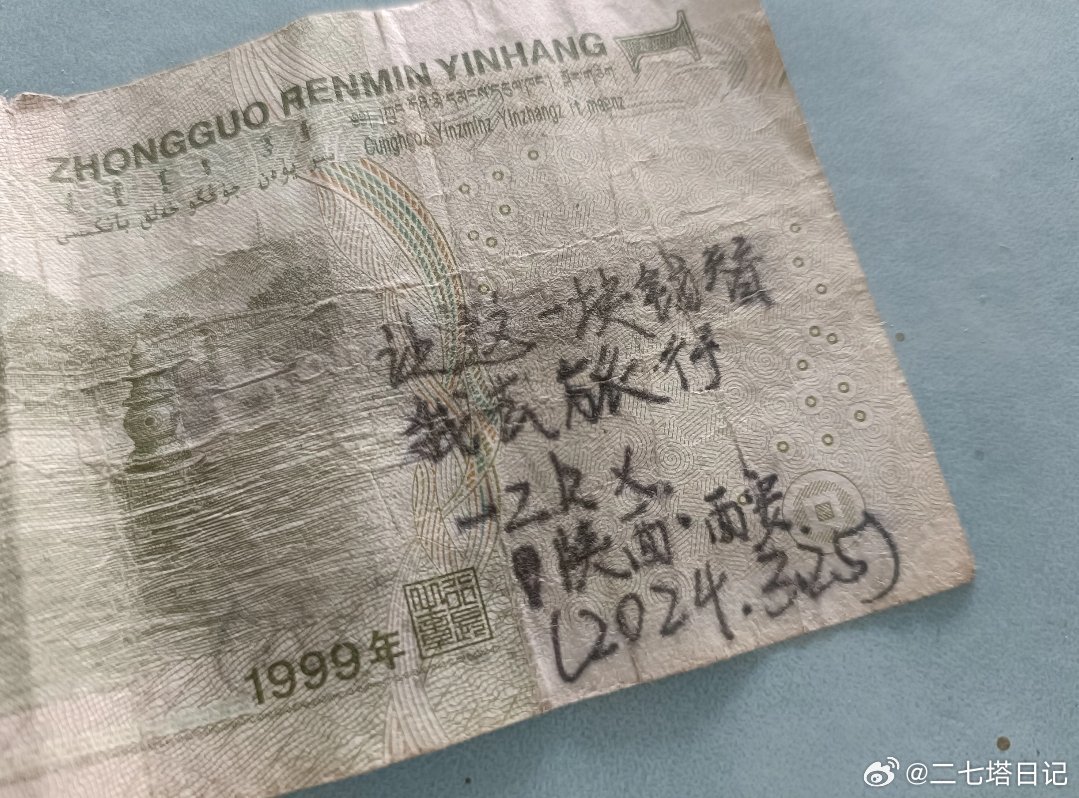 ZHONGGUO RENMIN YINHANG
Cunghgoz Yinzminz Yinzhangz It maenz
让这一块钱替
我去旅行
-ZRX.
陕西.西安.
(2024.3.25)
1999年
@二七塔日记